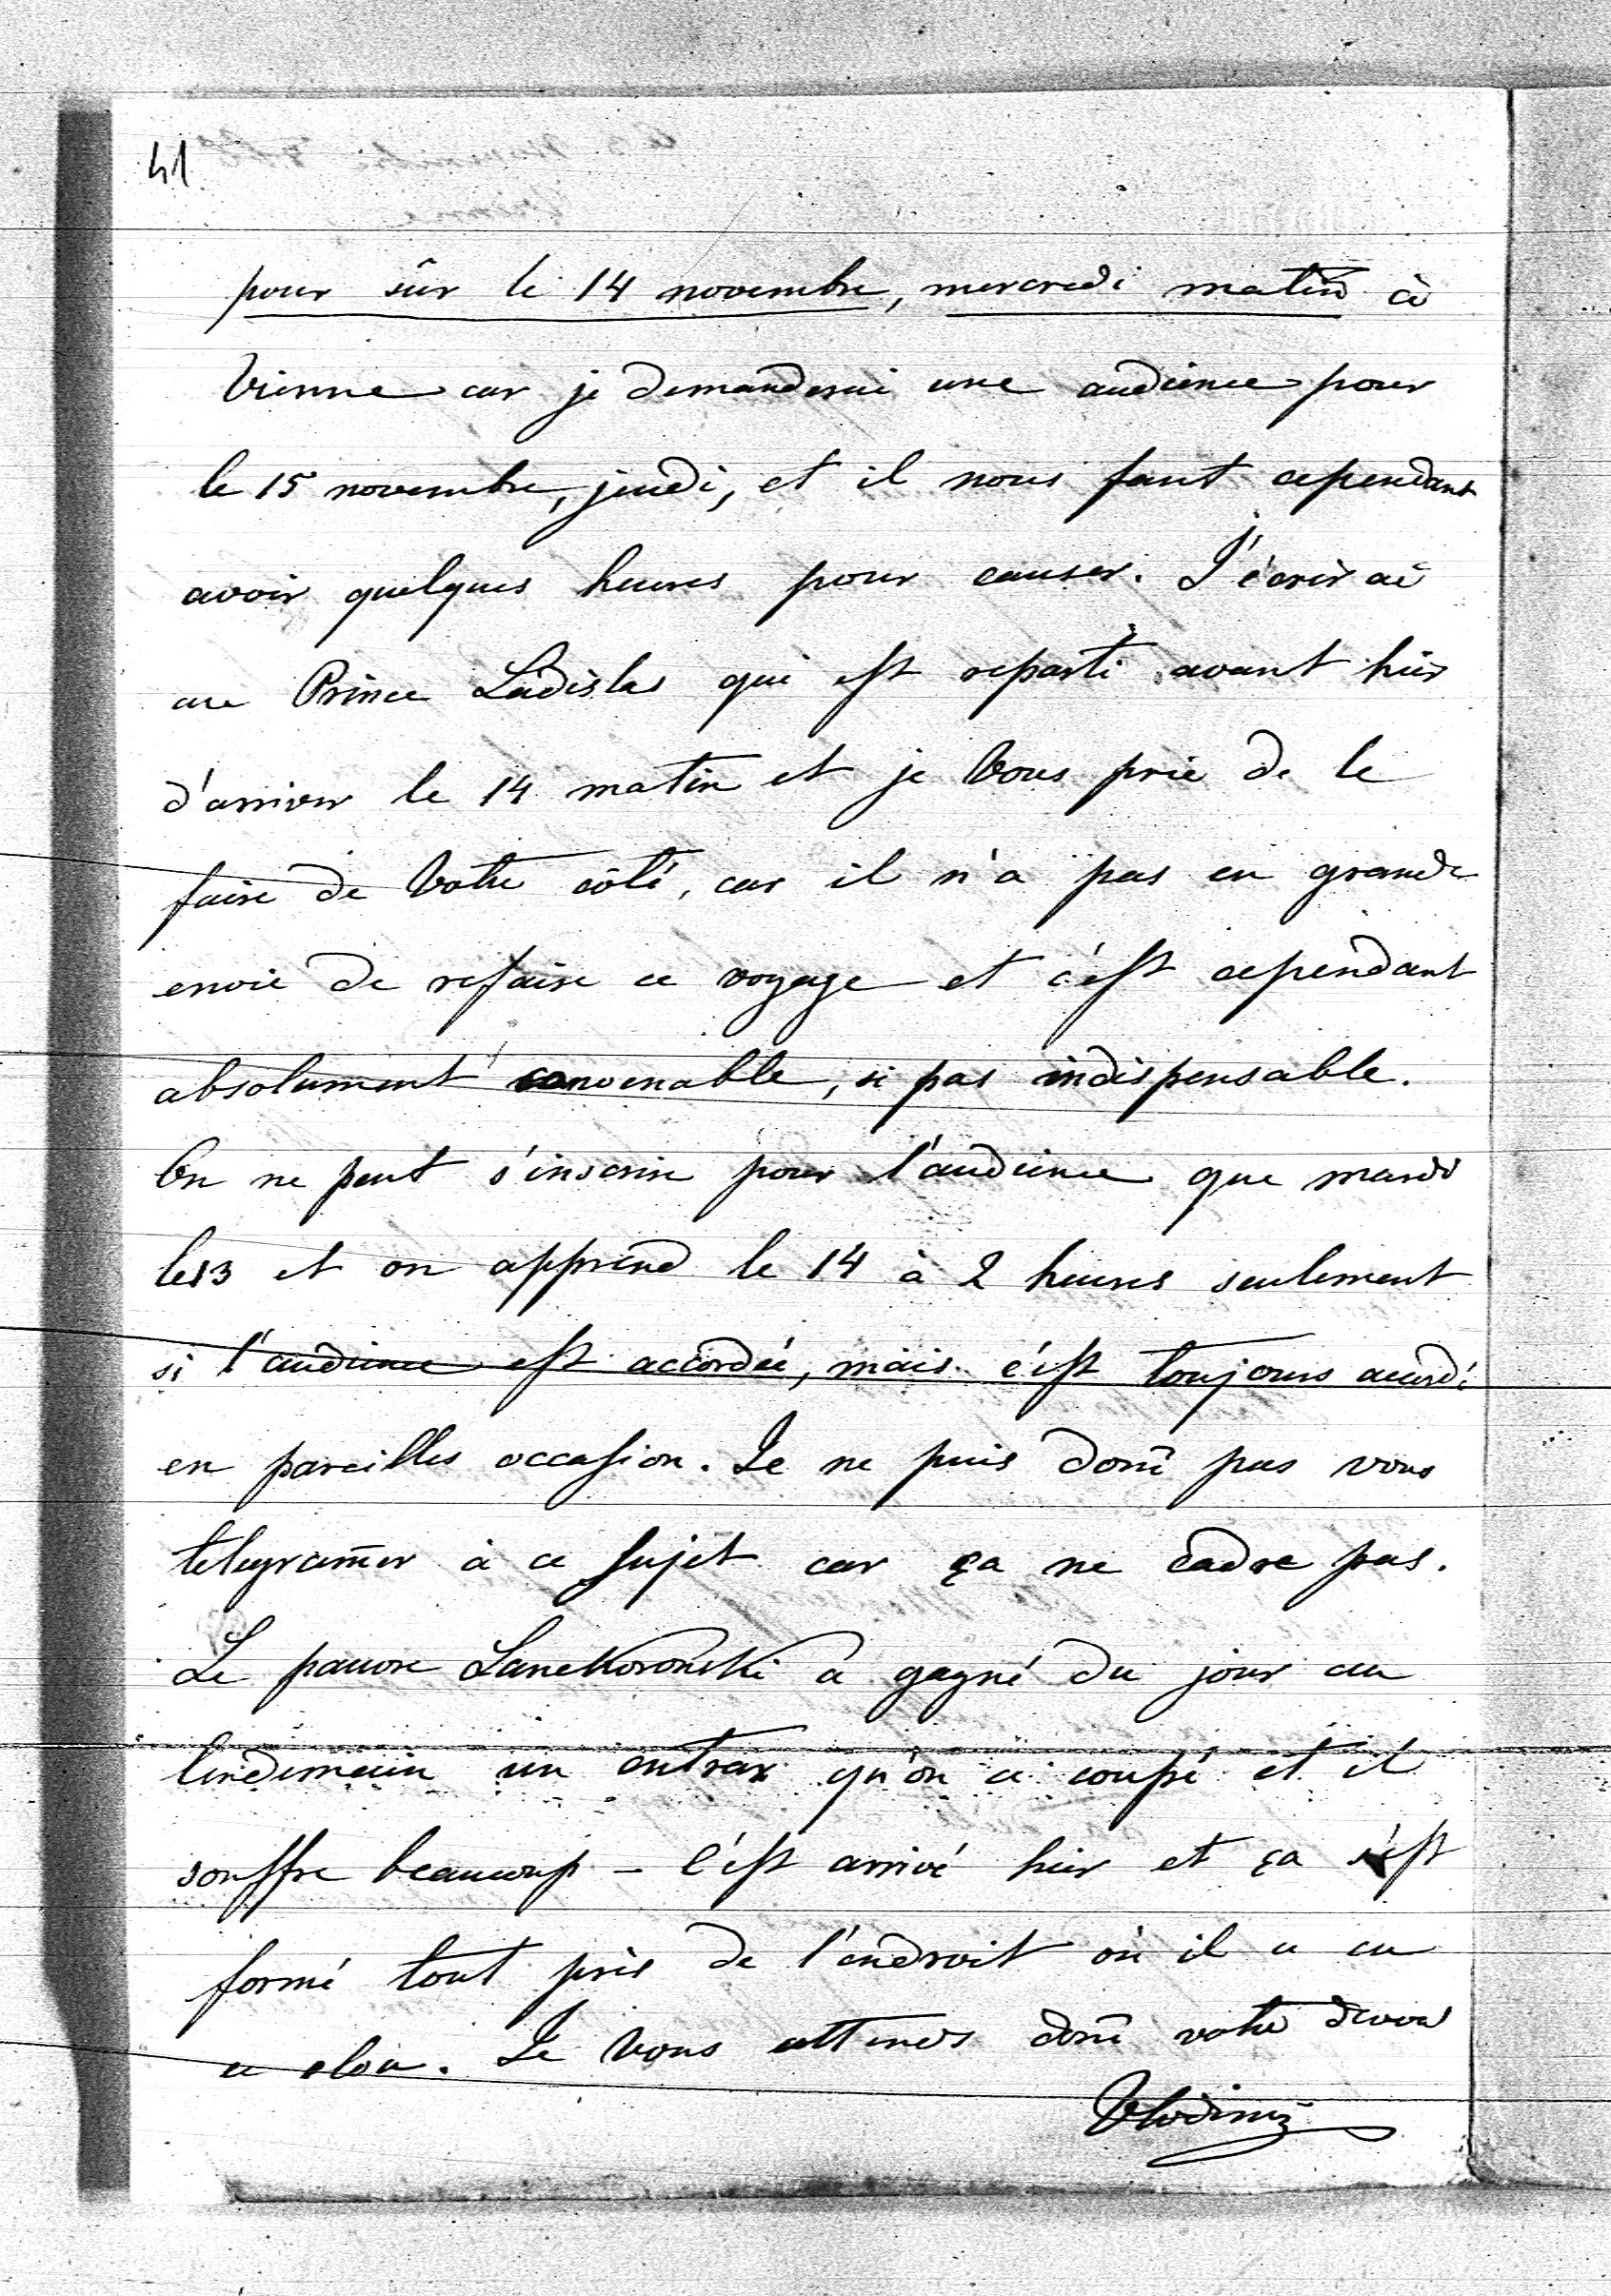 41
pour sûr le 14 novembre, mercredi matin à
Vienne car je demanderai une audience pour
le 15 novembre, jeudi, et il nous faut cependant
avoir quelques heures pour causer. J'écrirai
au Prince Ladislas qui est reparti avant hier
d'arriver le 14 matin et je Vous prie de le
faire de Votre côté, car il n'a pas eu grande
envie de refaire ce voyage et c'est cependant
absolument convenable, si pas indispensable.
On ne peut s'inscrire pour l'audience que mardi
le 13 et on apprend le 14 à 2 heures seulement
si l'audience est accordée, mais c'est toujours accordé
en pareilles occasion. Je ne puis donc pas vous
telegram̄er à ce sujet car ça ne cadre pas.
Le pauvre Lanckoronski a gagné du jour au
lendemain un antrax qu'on a coupé et il
souffre beaucoup – c'est arrivé hier et ça s'est
formé tout près de l'endroit où il a eu
ce clou. Je Vous attends donc votre dévoué